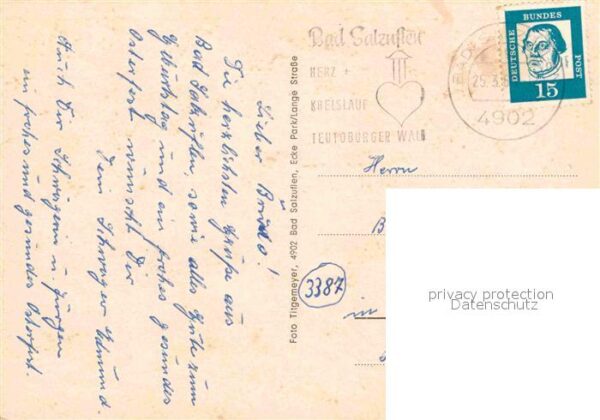 Lieber Bruno!
Die herzlichsten Grüße aus
Bad Salzuflen, sowie alles Gute zum
Geburtstag und ein frohes gesundes
Osterfest wünscht Dir
Dein Schwager Edmund.
Auch Dir Schwägerin u. Jürgen
ein frohes und gesundes Osterfest.
Foto Tilgemeyer, 4902 Bad Salzuflen, Ecke Park/Lange Straße
Bad Salzuflen
HERZ +
KREISLAUF
TEUTOBURGER WALD
25.3.
4902
DEUTSCHE BUNDESPOST
15
Herrn
B
in
3387
privacy protection
Datenschutz